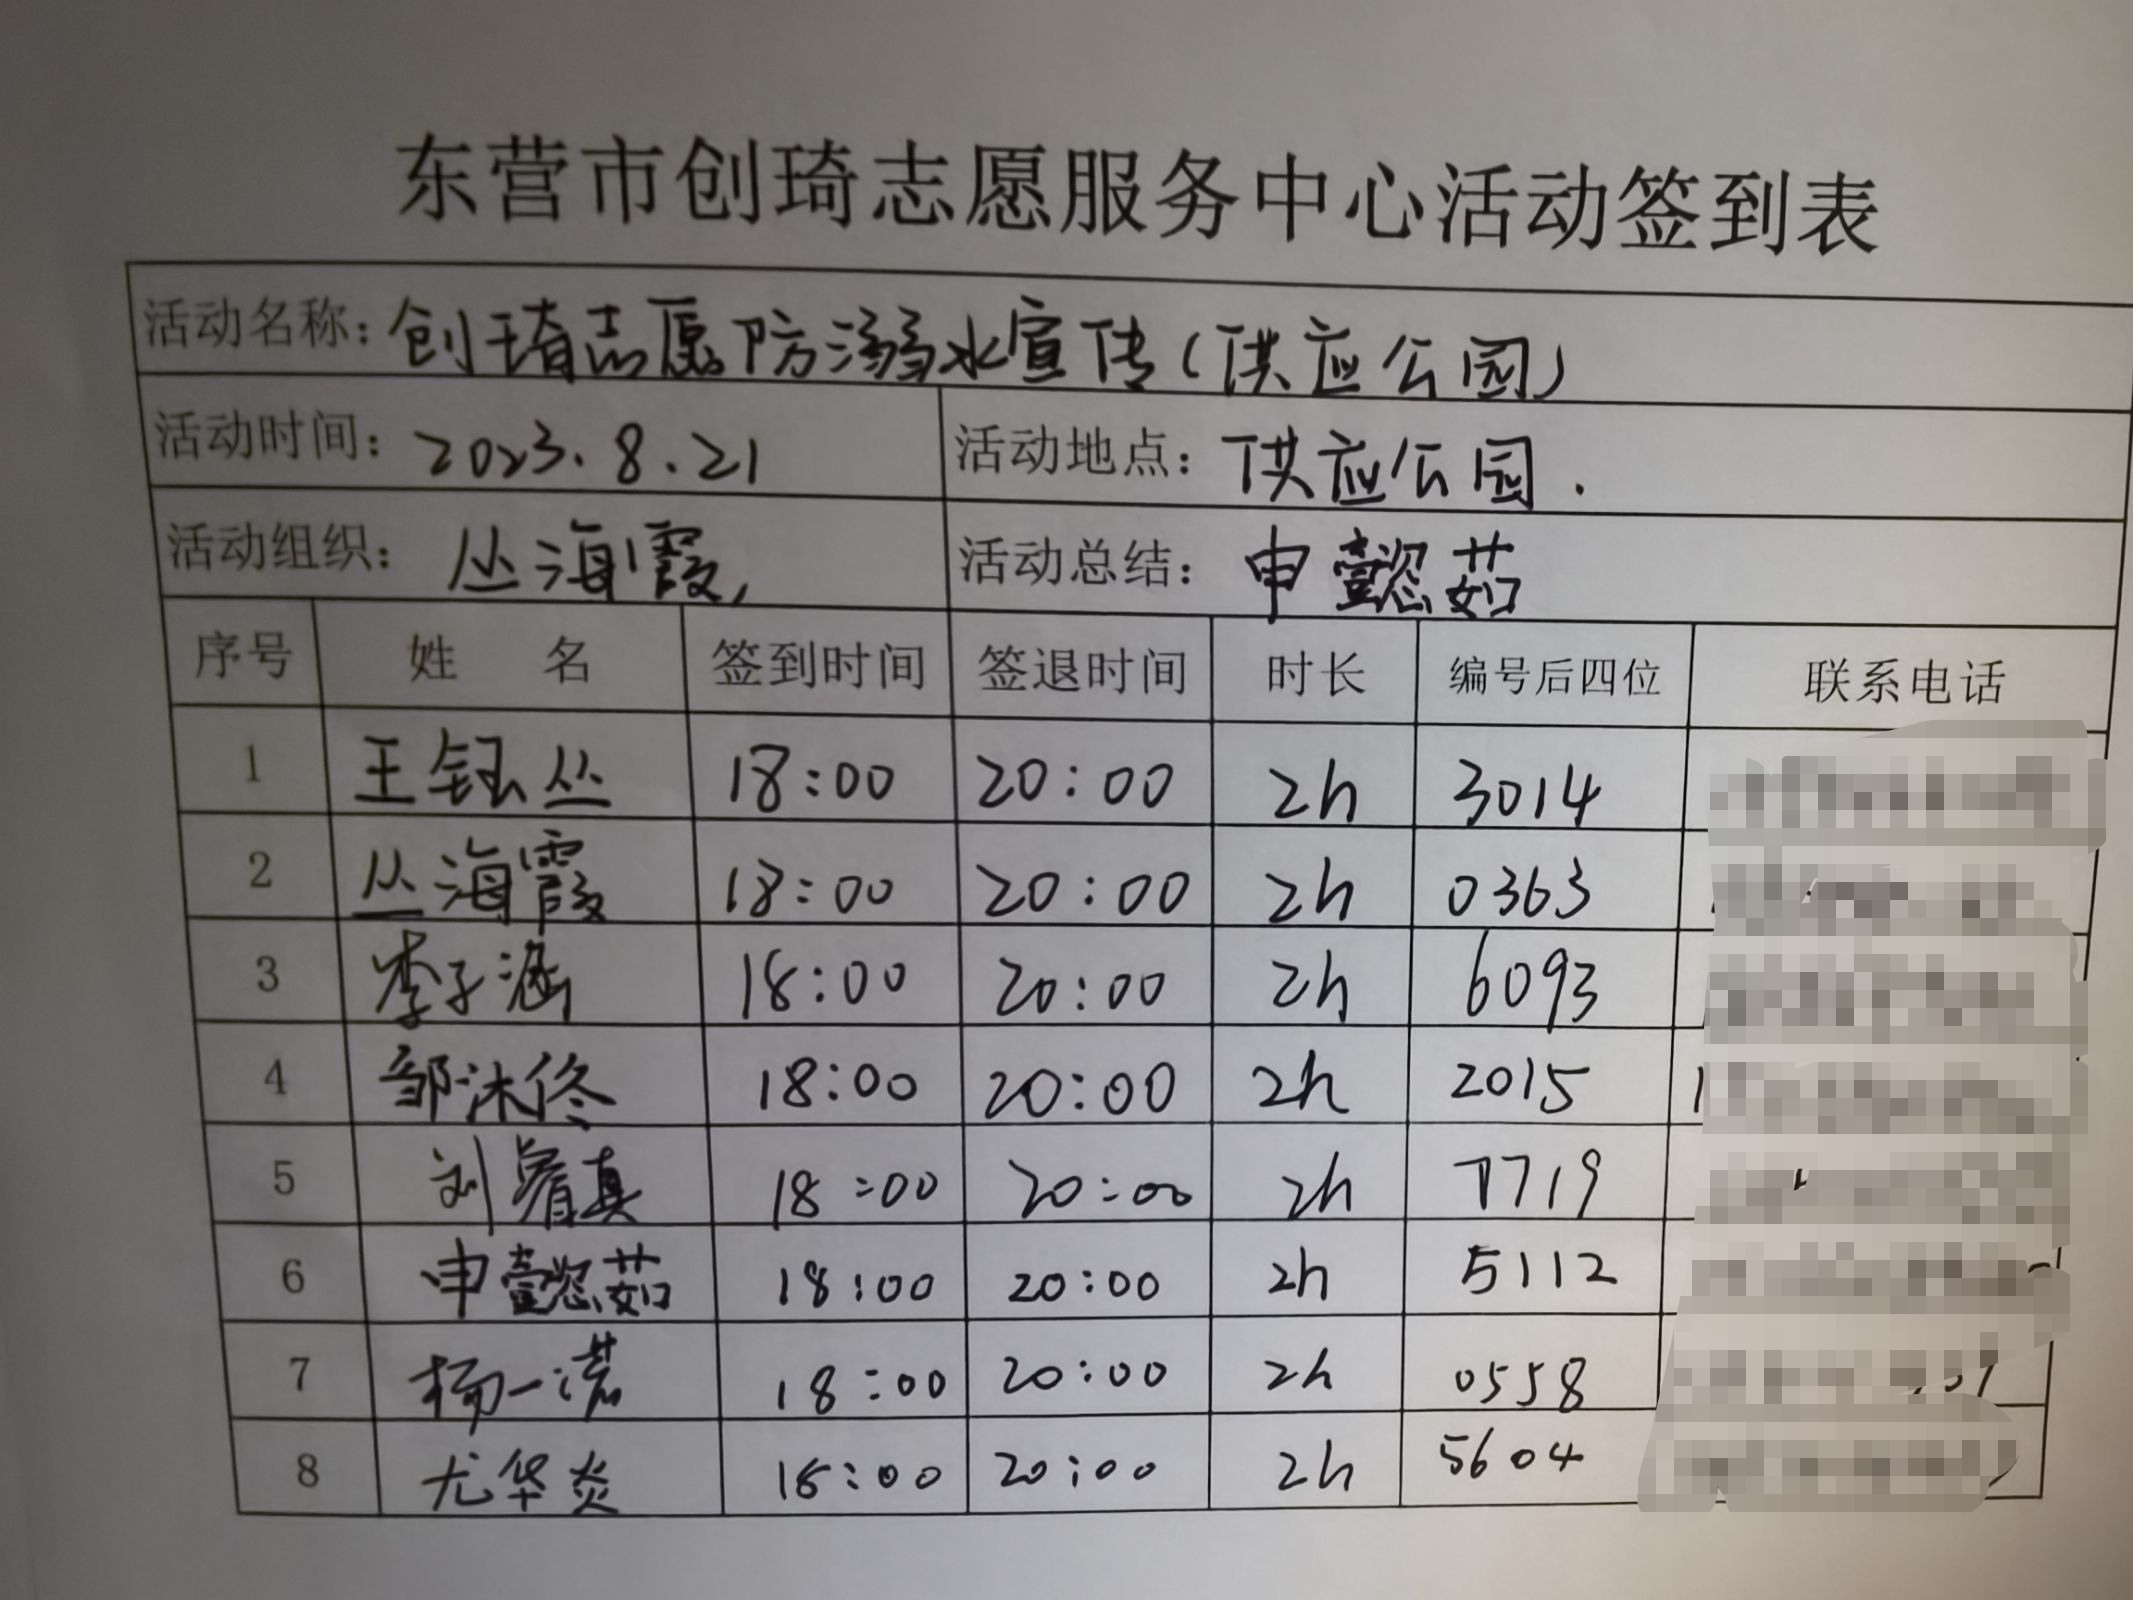 东营市创琦志愿服务中心活动签到表
活动名称：创琦志愿防溺水宣传（供应公园）
活动时间：2023.8.21 活动地点：供应公园.
活动组织：丛海霞 活动总结：申懿茹
序号 姓 名 签到时间 签退时间 时长 编号后四位 联系电话
1 王钰丛 18:00 20:00 2h 3014
2 丛海霞 18:00 20:00 2h 0363
3 李子涵 18:00 20:00 2h 6093
4 邹沐佟 18:00 20:00 2h 2015
5 刘睿真 18:00 20:00 2h 7719
6 申懿茹 18:00 20:00 2h 5112
7 杨一诺 18:00 20:00 2h 0558
8 尤华炎 18:00 20:00 2h 5604